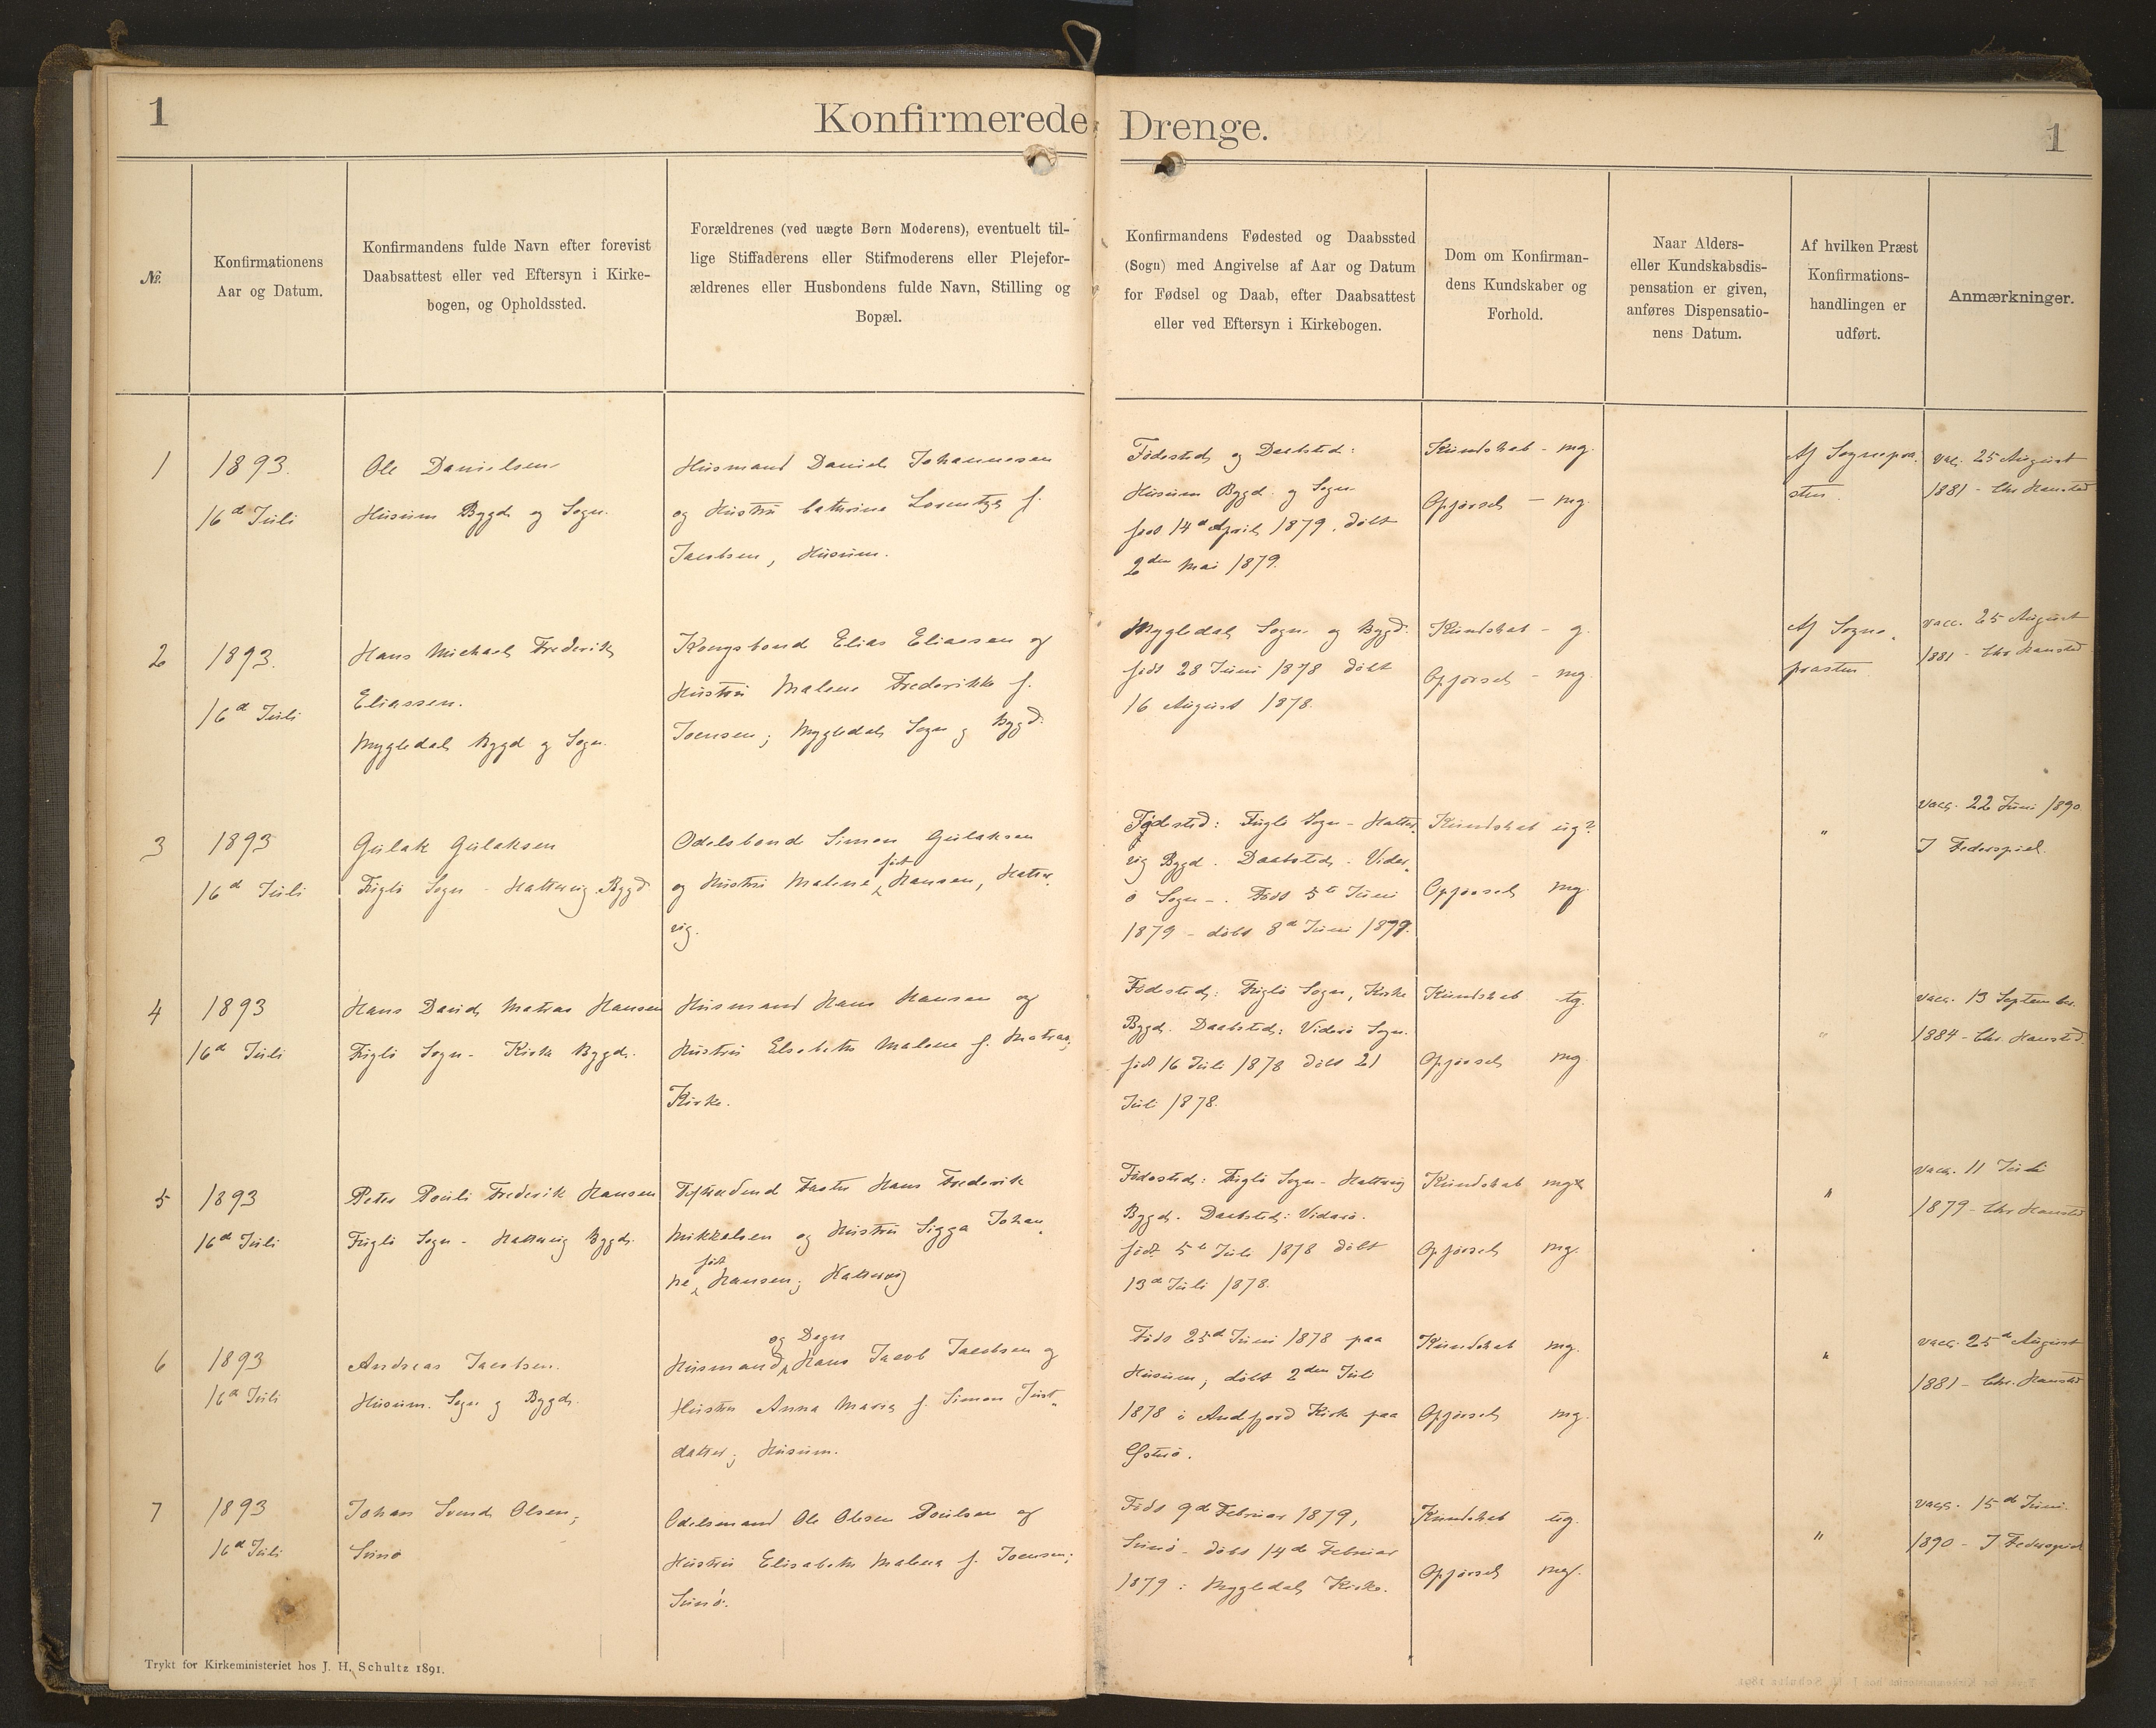 1
Konfirmerede Drenge.
1
№.
Konfirmationens
Aar og Datum.
Konfirmandens fulde Navn efter forevist
Daabsattest eller ved Eftersyn i Kirke-
bogen, og Opholdssted.
Forældrenes (ved uægte Børn Moderens), eventuelt til-
lige Stiffaderens eller Stifmoderens eller Plejefor-
ældrenes eller Husbondens fulde Navn, Stilling og
Bopæl.
Konfirmandens Fødested og Daabssted
(Sogn) med Angivelse af Aar og Datum
for Fødsel og Daab, efter Daabsattest
eller ved Eftersyn i Kirkebogen.
Dom om Konfirman-
dens Kundskaber og
Forhold.
Naar Alders-
eller Kundskabsdis-
pensation er given,
anføres Dispensatio-
nens Datum.
Af hvilken Præst
Konfirmations-
handlingen er
udført.
Anmærkninger.
1
1893.
16d Juli
Ole Danielsen
Husum Bygd og Sogn.
Husmand Daniel Johannesen
og Hustru Cathrina Lorentze f.
Jacobsen, Husum.
Fødested og Daabsted:
Husum Bygd. og Sogn
født 14d April 1879. døbt
2den Mai 1879.
Kundskab - mg.
Opførsel - mg.
Af Sognepræ-
sten.
vac. 25 August
1881 - Chr Hansted
2
1893.
16d Juli
Hans Michael Frederik
Eliassen.
Mygledal Bygd og Sogn.
Kongsbond Elias Eliassen og
Hustru Malene Frederikke f.
Joensen; Mygledal Sogn og Bygd.
Mygledal Sogn og Bygd.
født 28 Juni 1878 døbt
16 August 1878.
Kundskab - g.
Opførsel - mg.
Af Sogne-
præsten
vacc. 25 August
1881 - Chr Hansted
3
1893
16d Juli
Gulak Gulaksen
Fuglø Sogn - Hattervig Bygd
Odelsbonde Simon Gulaksen
og Hustru Malene født Hansen, Hatter-
vig.
Fødested: Fuglø Sogn - Hatter-
vig Bygd. Daabsted: Vider-
ø Sogn -. Født 5te Juni
1879 - døbt 8d Juni 1879.
Kundskab ug?
Opførsel mg.
"
vacc. 22 Juni 1890
J Federspiel.
4
1893
16d Juli
Hans David Matras Hansen
Fuglø Sogn - Kirke Bygd.
Husmand Hans Hansen og
Hustru Elsebeth Malene f. Matras;
Kirke.
Fødested: Fuglø Sogn, Kirke
Bygd. Daabsted: Viderø Sogn.
født 16 Juli 1878 døbt 21
Juli 1878.
Kundskab tg.
Opførsel mg.
"
vacc. 13 September
1884 - Chr. Hansted.
5
1893
16d Juli
Peter Pouli Frederik Hansen
Fuglø Sogn - Hattervig Bygd.
Fæster Hans Frederik
Mikkelsen og Hustru Sigga Johan-
ne født Hansen; Hattervig
Fødested: Fuglø Sogn - Hattervig
Bygd. Daabsted: Viderø.
født 5te Juli 1878 døbt
13d Juli 1878.
Kundskab mgx
Opførsel mg.
"
vacc. 11 Juli
1879 - Chr Hansted
6
1893
16d Juli
Andreas Jacobsen.
Husum. Sogn og Bygd.
Husmand og Degn Hans Jacob Jacobsen og
Hustru Anna Maria f. Simon Just-
datter; Husum.
Født 25d Juni 1878 paa
Husum; døbt 2den Juli
1878 i Andfjord Kirke paa
Østerø.
Kundskab mg.
Opførsel mg.
"
vacc. 25d August
1881 - Chr. Hansted
7
1893
16d Juli
Johan Svend Olsen;
Svinø
Odelsmand Ole Olesen Poulsen og
Hustru Elisabeth Malena f. Joensen;
Svinø.
Født 9d Februar 1879,
Svinø - døbt 14de Februar
1879 i Mygledal Kirke.
Kundskab ug.
Opførsel mg.
"
vacc. 15d Juni
1890 - J Federspiel
Trykt for Kirkeministeriet hos J. H. Schultz 1891.